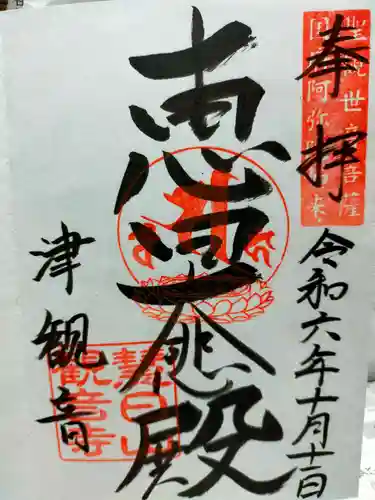 奉拝
聖観世音菩薩
国府阿弥陀如来
殿
令和六年十月十一日
津観音
慧日山
観音寺